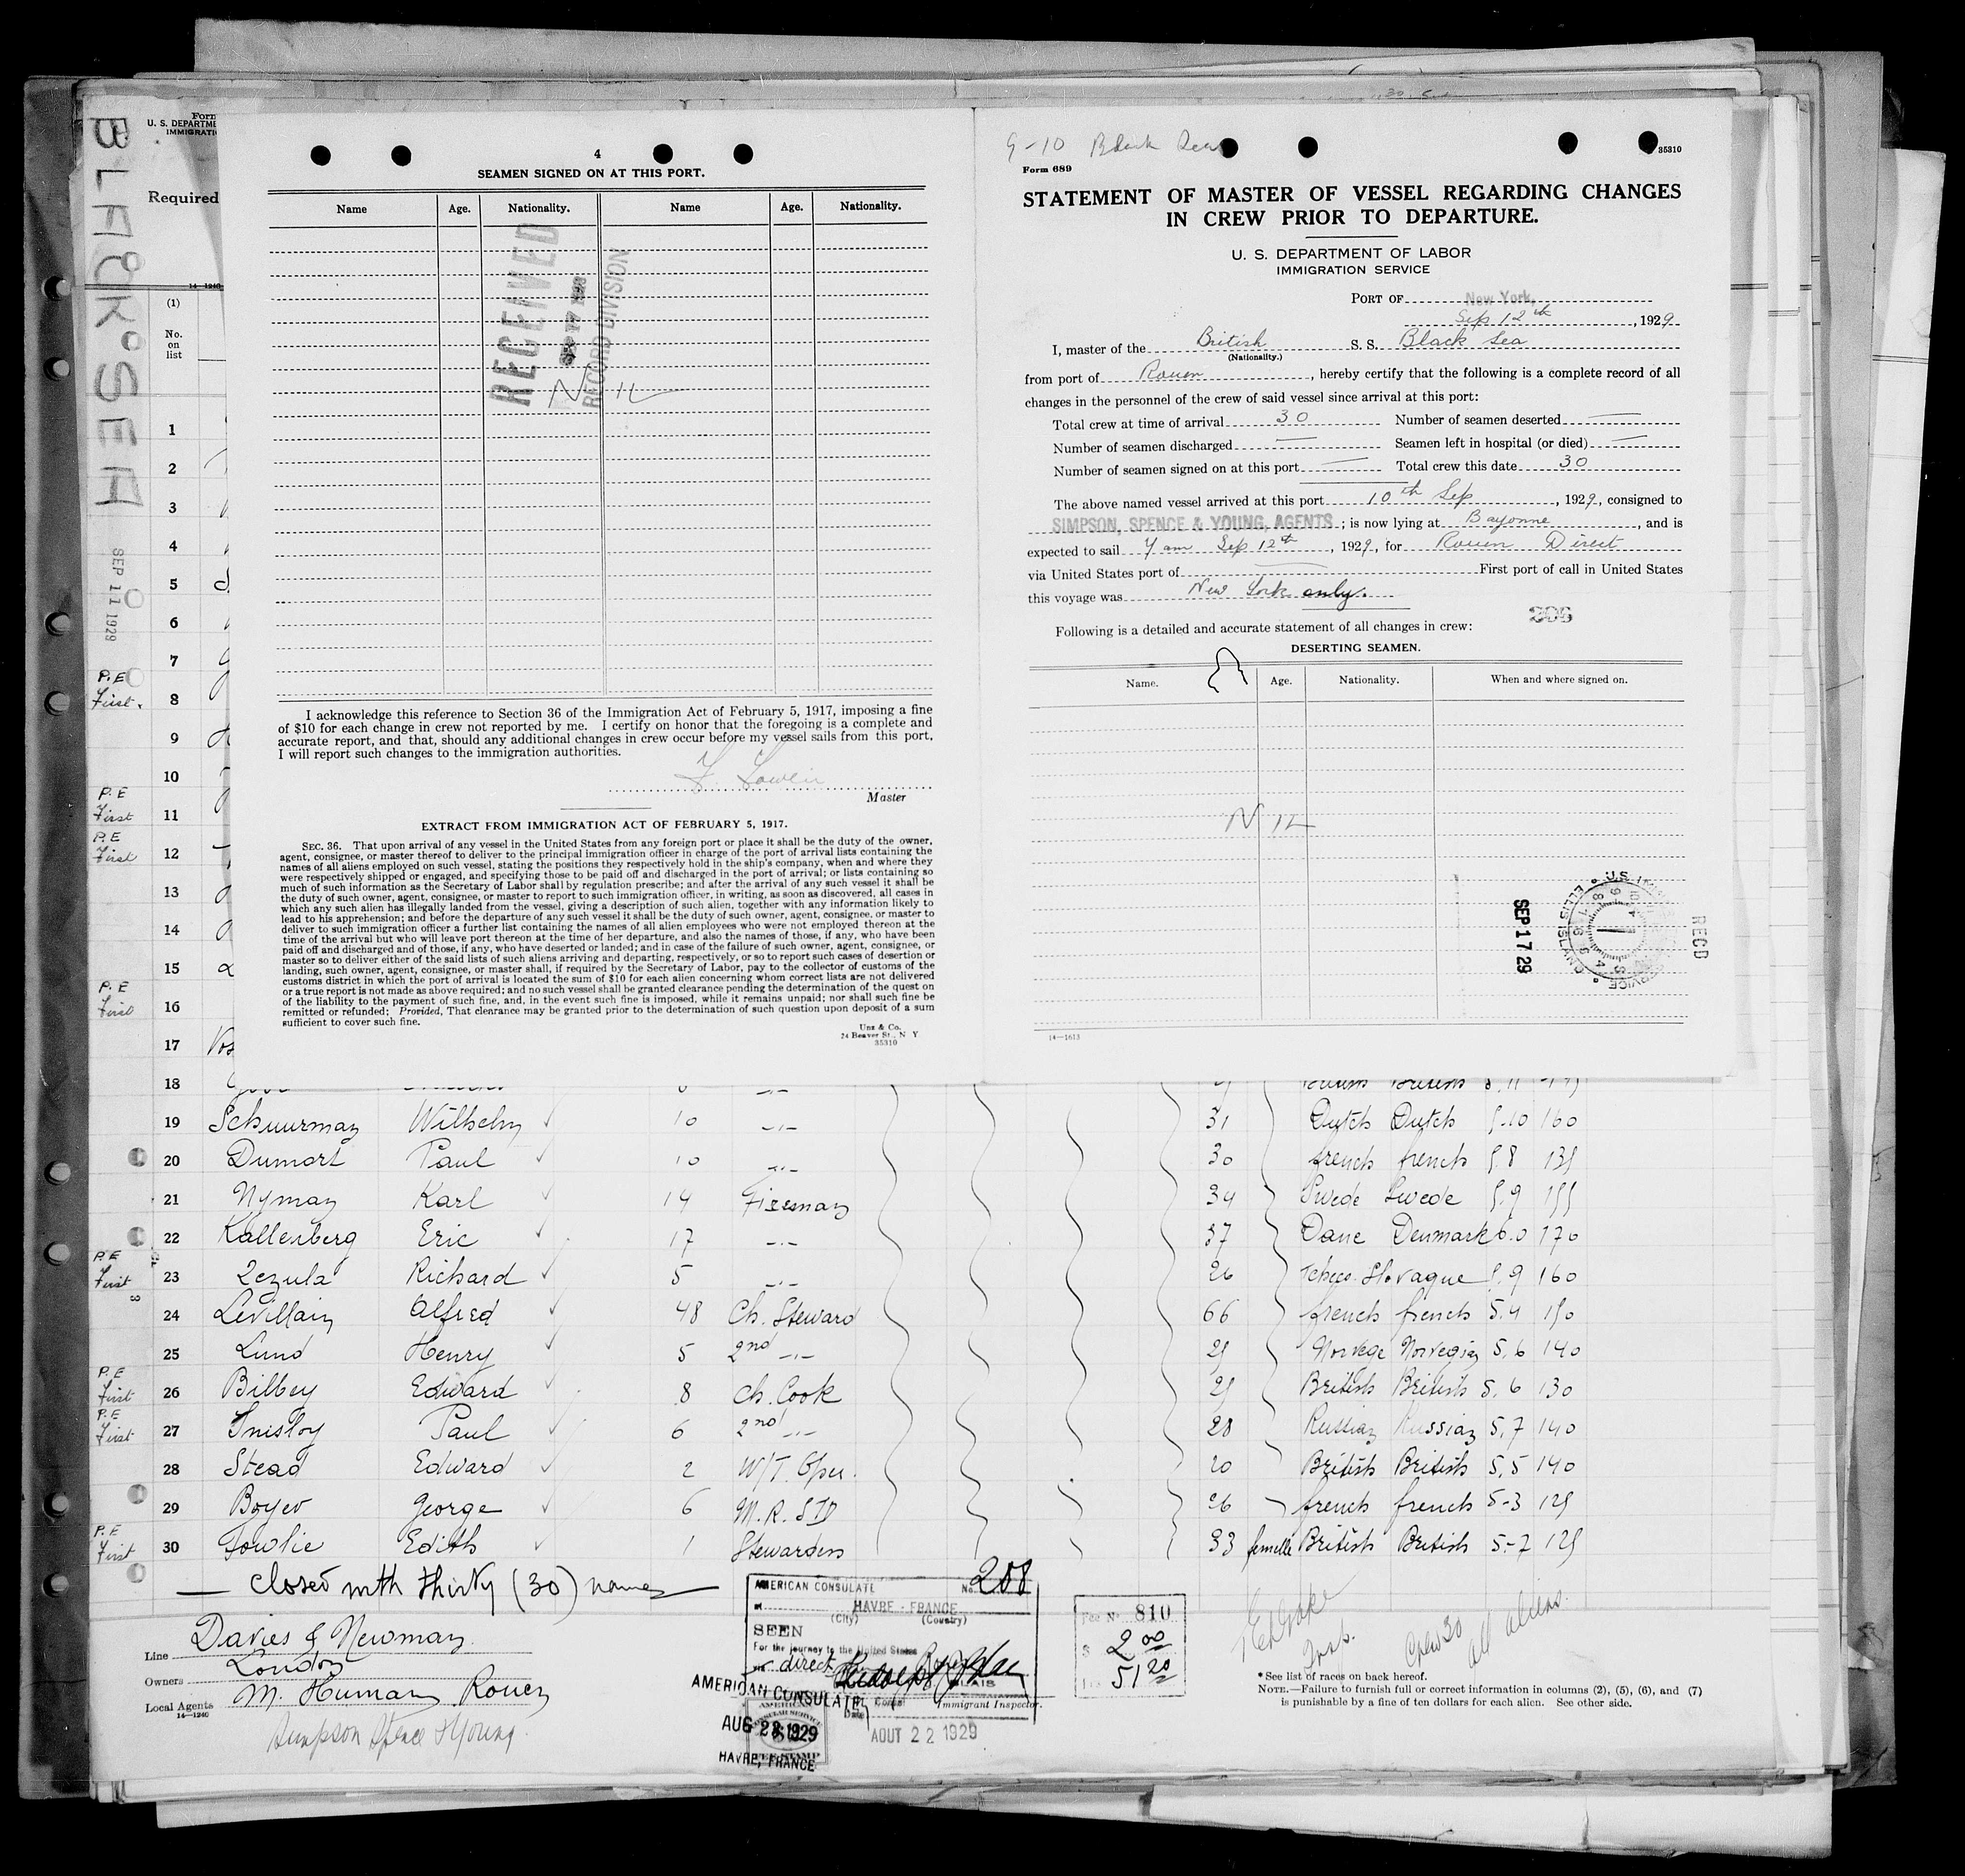 BLACK SEA
SEP 11 1929
Form
U. S. DEPARTME
IMMIGRATI
Required
14-1240
(1)
No.
on
list
1
2
3
4
5
6
7
P.E
First.
8
9
10
P.E
First
11
P.E
First
12
13
14
15
P.E
First
16
17
4
SEAMEN SIGNED ON AT THIS PORT.
Name Age. Nationality. Name Age. Nationality.
RECEIVED
RECORD DIVISION
NIL
I acknowledge this reference to Section 36 of the Immigration Act of February 5, 1917, imposing a fine
of $10 for each change in crew not reported by me. I certify on honor that the foregoing is a complete and
accurate report, and that, should any additional changes in crew occur before my vessel sails from this port,
I will report such changes to the immigration authorities.
Master
EXTRACT FROM IMMIGRATION ACT OF FEBRUARY 5, 1917.
SEC. 36. That upon arrival of any vessel in the United States from any foreign port or place it shall be the duty of the owner,
agent, consignee, or master thereof to deliver to the principal immigration officer in charge of the port of arrival lists containing the
names of all aliens employed on such vessel, stating the positions they respectively hold in the ship's company, when and where they
were respectively shipped or engaged, and specifying those to be paid off and discharged in the port of arrival; or lists containing so
much of such information as the Secretary of Labor shall by regulation prescribe; and after the arrival of any such vessel it shall be
the duty of such owner, agent, consignee, or master to report to such immigration officer, in writing, as soon as discovered, all cases in
which any such alien has illegally landed from the vessel, giving a description of such alien, together with any information likely to
lead to his apprehension; and before the departure of any such vessel it shall be the duty of such owner, agent, consignee, or master to
deliver to such immigration officer a further list containing the names of all alien employees who were not employed thereon at the
time of the arrival but who will leave port thereon at the time of her departure, and also the names of those, if any, who have been
paid off and discharged and of those, if any, who have deserted or landed; and in case of the failure of such owner, agent, consignee, or
master so to deliver either of the said lists of such aliens arriving and departing, respectively, or so to report such cases of desertion or
landing, such owner, agent, consignee, or master shall, if required by the Secretary of Labor, pay to the collector of customs of the
customs district in which the port of arrival is located the sum of $10 for each alien concerning whom correct lists are not delivered
or a true report is not made as above required; and no such vessel shall be granted clearance pending the determination of the quest on
of the liability to the payment of such fine, and, in the event such fine is imposed, while it remains unpaid; nor shall such fine be
remitted or refunded; Provided, That clearance may be granted prior to the determination of such question upon deposit of a sum
sufficient to cover such fine.
Unz & Co.
24 Beaver St., N Y
35310
9-10 Black Sea
35310
Form 689
STATEMENT OF MASTER OF VESSEL REGARDING CHANGES
IN CREW PRIOR TO DEPARTURE.
U. S. DEPARTMENT OF LABOR
IMMIGRATION SERVICE
PORT OF New York,
Sep 12th, 1929
I, master of the British S. S. Black Sea
(Nationality.)
from port of Rouen, hereby certify that the following is a complete record of all
changes in the personnel of the crew of said vessel since arrival at this port:
Total crew at time of arrival 30 Number of seamen deserted —
Number of seamen discharged — Seamen left in hospital (or died) —
Number of seamen signed on at this port — Total crew this date 30
The above named vessel arrived at this port 10th Sep, 1929, consigned to
SIMPSON, SPENCE & YOUNG, AGENTS; is now lying at Bayonne, and is
expected to sail 7 am Sep 12th, 1929, for Rouen Direct
via United States port of — First port of call in United States
this voyage was New York only.
Following is a detailed and accurate statement of all changes in crew:
DESERTING SEAMEN.
Name. Age. Nationality. When and where signed on.
NIL
SEP 17 29
REC'D
14-1613
18
19 Schuurman Wilhelm 10 -"- 31 Dutch Dutch 5.10 160
20 Dumort Paul 10 -"- 30 french french 5.8 135
21 Nyman Karl 14 Fireman 34 Swede Swede 5.9 155
22 Kallenberg Eric 17 -"- 37 Dane Denmark 6.0 170
P.E First 23 Zezula Richard 5 -"- 26 Tcheco-Slovaque 5.9 160
24 Levillain Alfred 48 Ch. Steward 66 french french 5.4 150
25 Lund Henry 5 2nd -"- 25 Norvege Norvegian 5.6 140
P.E First 26 Bilbey Edward 8 Ch. Cook 25 British British 5.6 130
P.E First 27 Paul 6 2nd -"- 28 Russian Russian 5.7 140
28 Stead Edward 2 W/T. Oper. 20 British British 5.5 140
29 Boyer George 6 M.R. STD 26 french french 5-3 125
P.E First 30 Fowlie Edith 1 Stewardess 33 femelle British British 5-7 125
— Closed with thirty (30) names —
Line Davies & Newman
Owners London
Local Agents M. Human Rouen
14-1240
Simpson Spence & Young
AMERICAN CONSULATE No. 208
HAVRE - FRANCE
(City) (Country)
SEEN
For the journey to the United States
via direct
AMERICAN CONSULATE
AUG 22 1929
HAVRE, FRANCE
AOUT 22 1929
Immigrant Inspector.
Fee No 810
$ 2 00
51 20
Insp.
Crew 30
all aliens.
*See list of races on back hereof.
NOTE.—Failure to furnish full or correct information in columns (2), (5), (6), and (7)
is punishable by a fine of ten dollars for each alien. See other side.